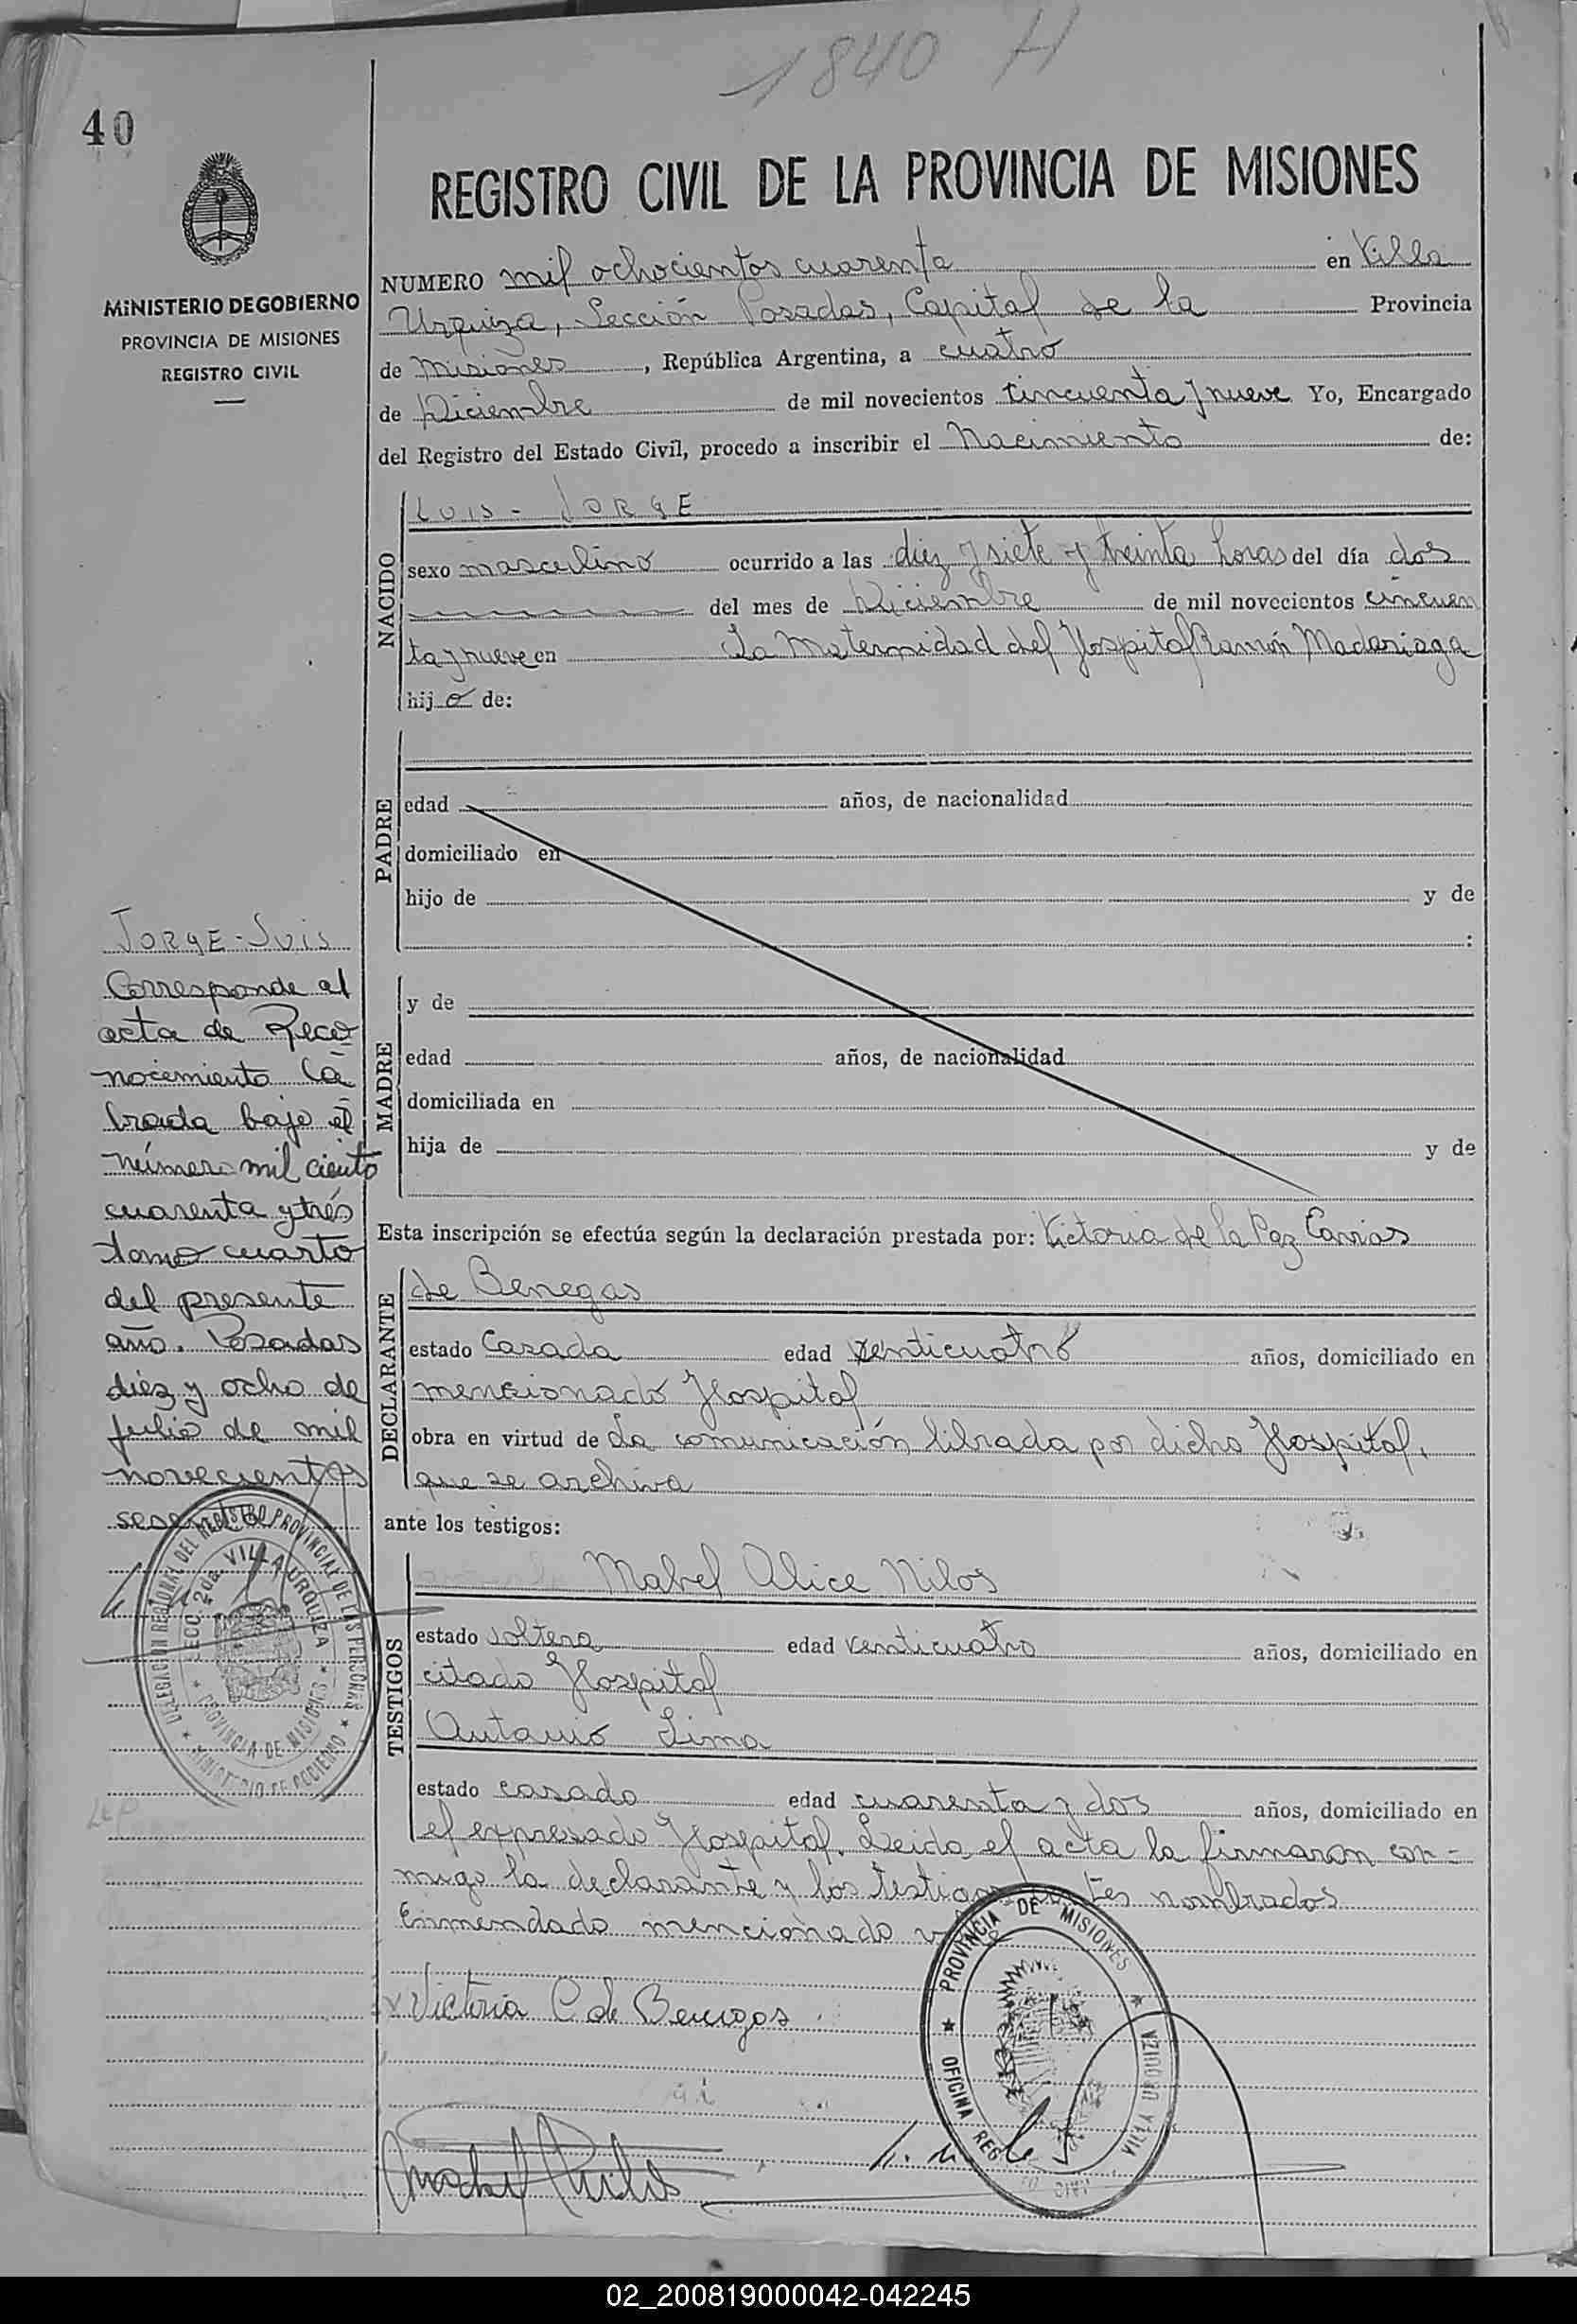 1840 H
40
REGISTRO CIVIL DE LA PROVINCIA DE MISIONES
MINISTERIO DE GOBIERNO
PROVINCIA DE MISIONES
REGISTRO CIVIL
NUMERO mil ochocientos cuarenta en Villa
Urquiza, Sección Posadas, Capital de la Provincia
de Misiones, República Argentina, a cuatro
de Diciembre de mil novecientos cincuenta y nueve Yo, Encargado
del Registro del Estado Civil, procedo a inscribir el Nacimiento de:
NACIDO
LUIS - JORGE
sexo masculino ocurrido a las diez y siete y treinta horas del día dos
del mes de Diciembre de mil novecientos cincuen
ta y nueve en La Maternidad del Hospital Ramón Madariaga
hijo de:
PADRE
edad años, de nacionalidad
domiciliado en
hijo de y de
:
MADRE
y de
edad años, de nacionalidad
domiciliada en
hija de y de
JORGE - LUIS
Corresponde al
acta de Reco
nocimiento la
brada bajo el
número mil ciento
cuarenta y trés
tomo cuarto
del presente
año. Posadas
diez y ocho de
julio de mil
novecientos
sesenta
DELEGACION REGIONAL DEL REGISTRO PROVINCIAL DE LAS PERSONAS
SECC. 2da. VILLA URQUIZA
PROVINCIA DE MISIONES
MINISTERIO DE GOBIERNO
Esta inscripción se efectúa según la declaración prestada por: Victoria de la Paz Carias
DECLARANTE
de Benegas
estado Casada edad venticuatro años, domiciliado en
mencionado Hospital
obra en virtud de La comunicación librada por dicho Hospital,
que se archiva
ante los testigos:
TESTIGOS
Mabel Alice Nilos
estado soltera edad venticuatro años, domiciliado en
citado Hospital
Antonio Lima
estado casado edad cuarenta y dos años, domiciliado en
el expresado Hospital. Leida el acta la firmaron con-
migo la declarante y los testigos antes nombrados
Enmendado mencionado vale
Victoria C de Benegas
PROVINCIA DE MISIONES
VILLA URQUIZA
OFICINA REG
02_200819000042-042245